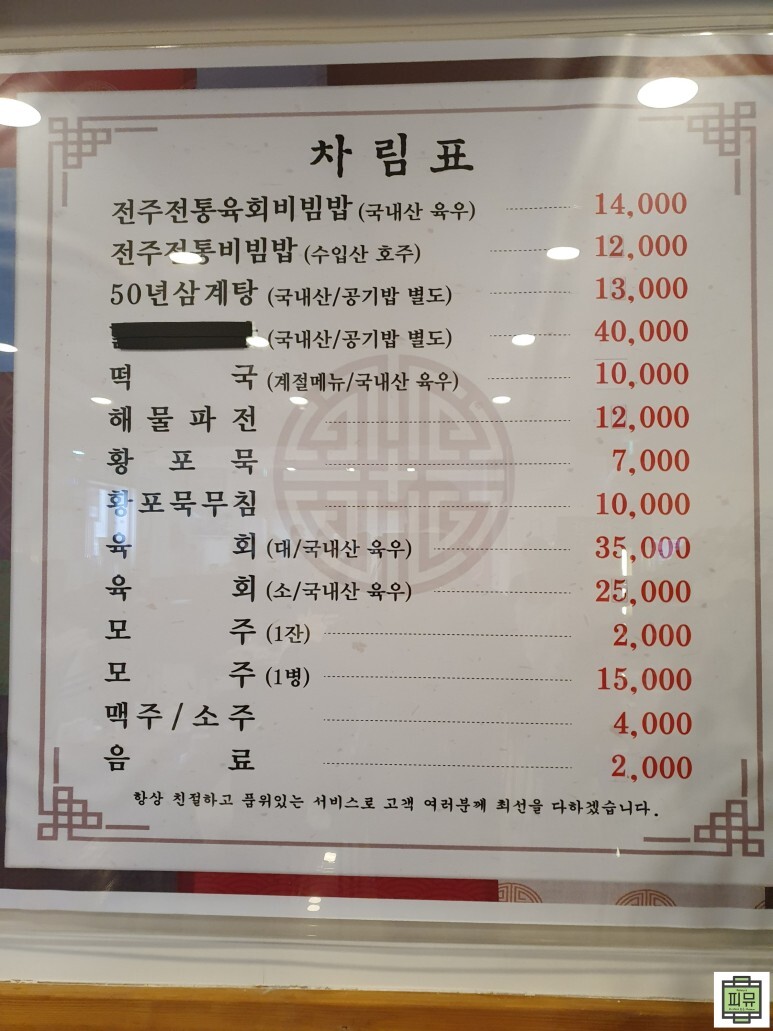 차림표
전주전통육회비빔밥 (국내산 육우) 14,000
전주전통비빔밥 (수입산 호주) 12,000
50년삼계탕 (국내산/공기밥 별도) 13,000
(국내산/공기밥 별도) 40,000
떡국 (계절메뉴/국내산 육우) 10,000
해물파전 12,000
황포묵 7,000
황포묵무침 10,000
육회 (대/국내산 육우) 35,000
육회 (소/국내산 육우) 25,000
모주 (1잔) 2,000
모주 (1병) 15,000
맥주/소주 4,000
음료 2,000
항상 친절하고 품위있는 서비스로 고객 여러분께 최선을 다하겠습니다.
피뮤